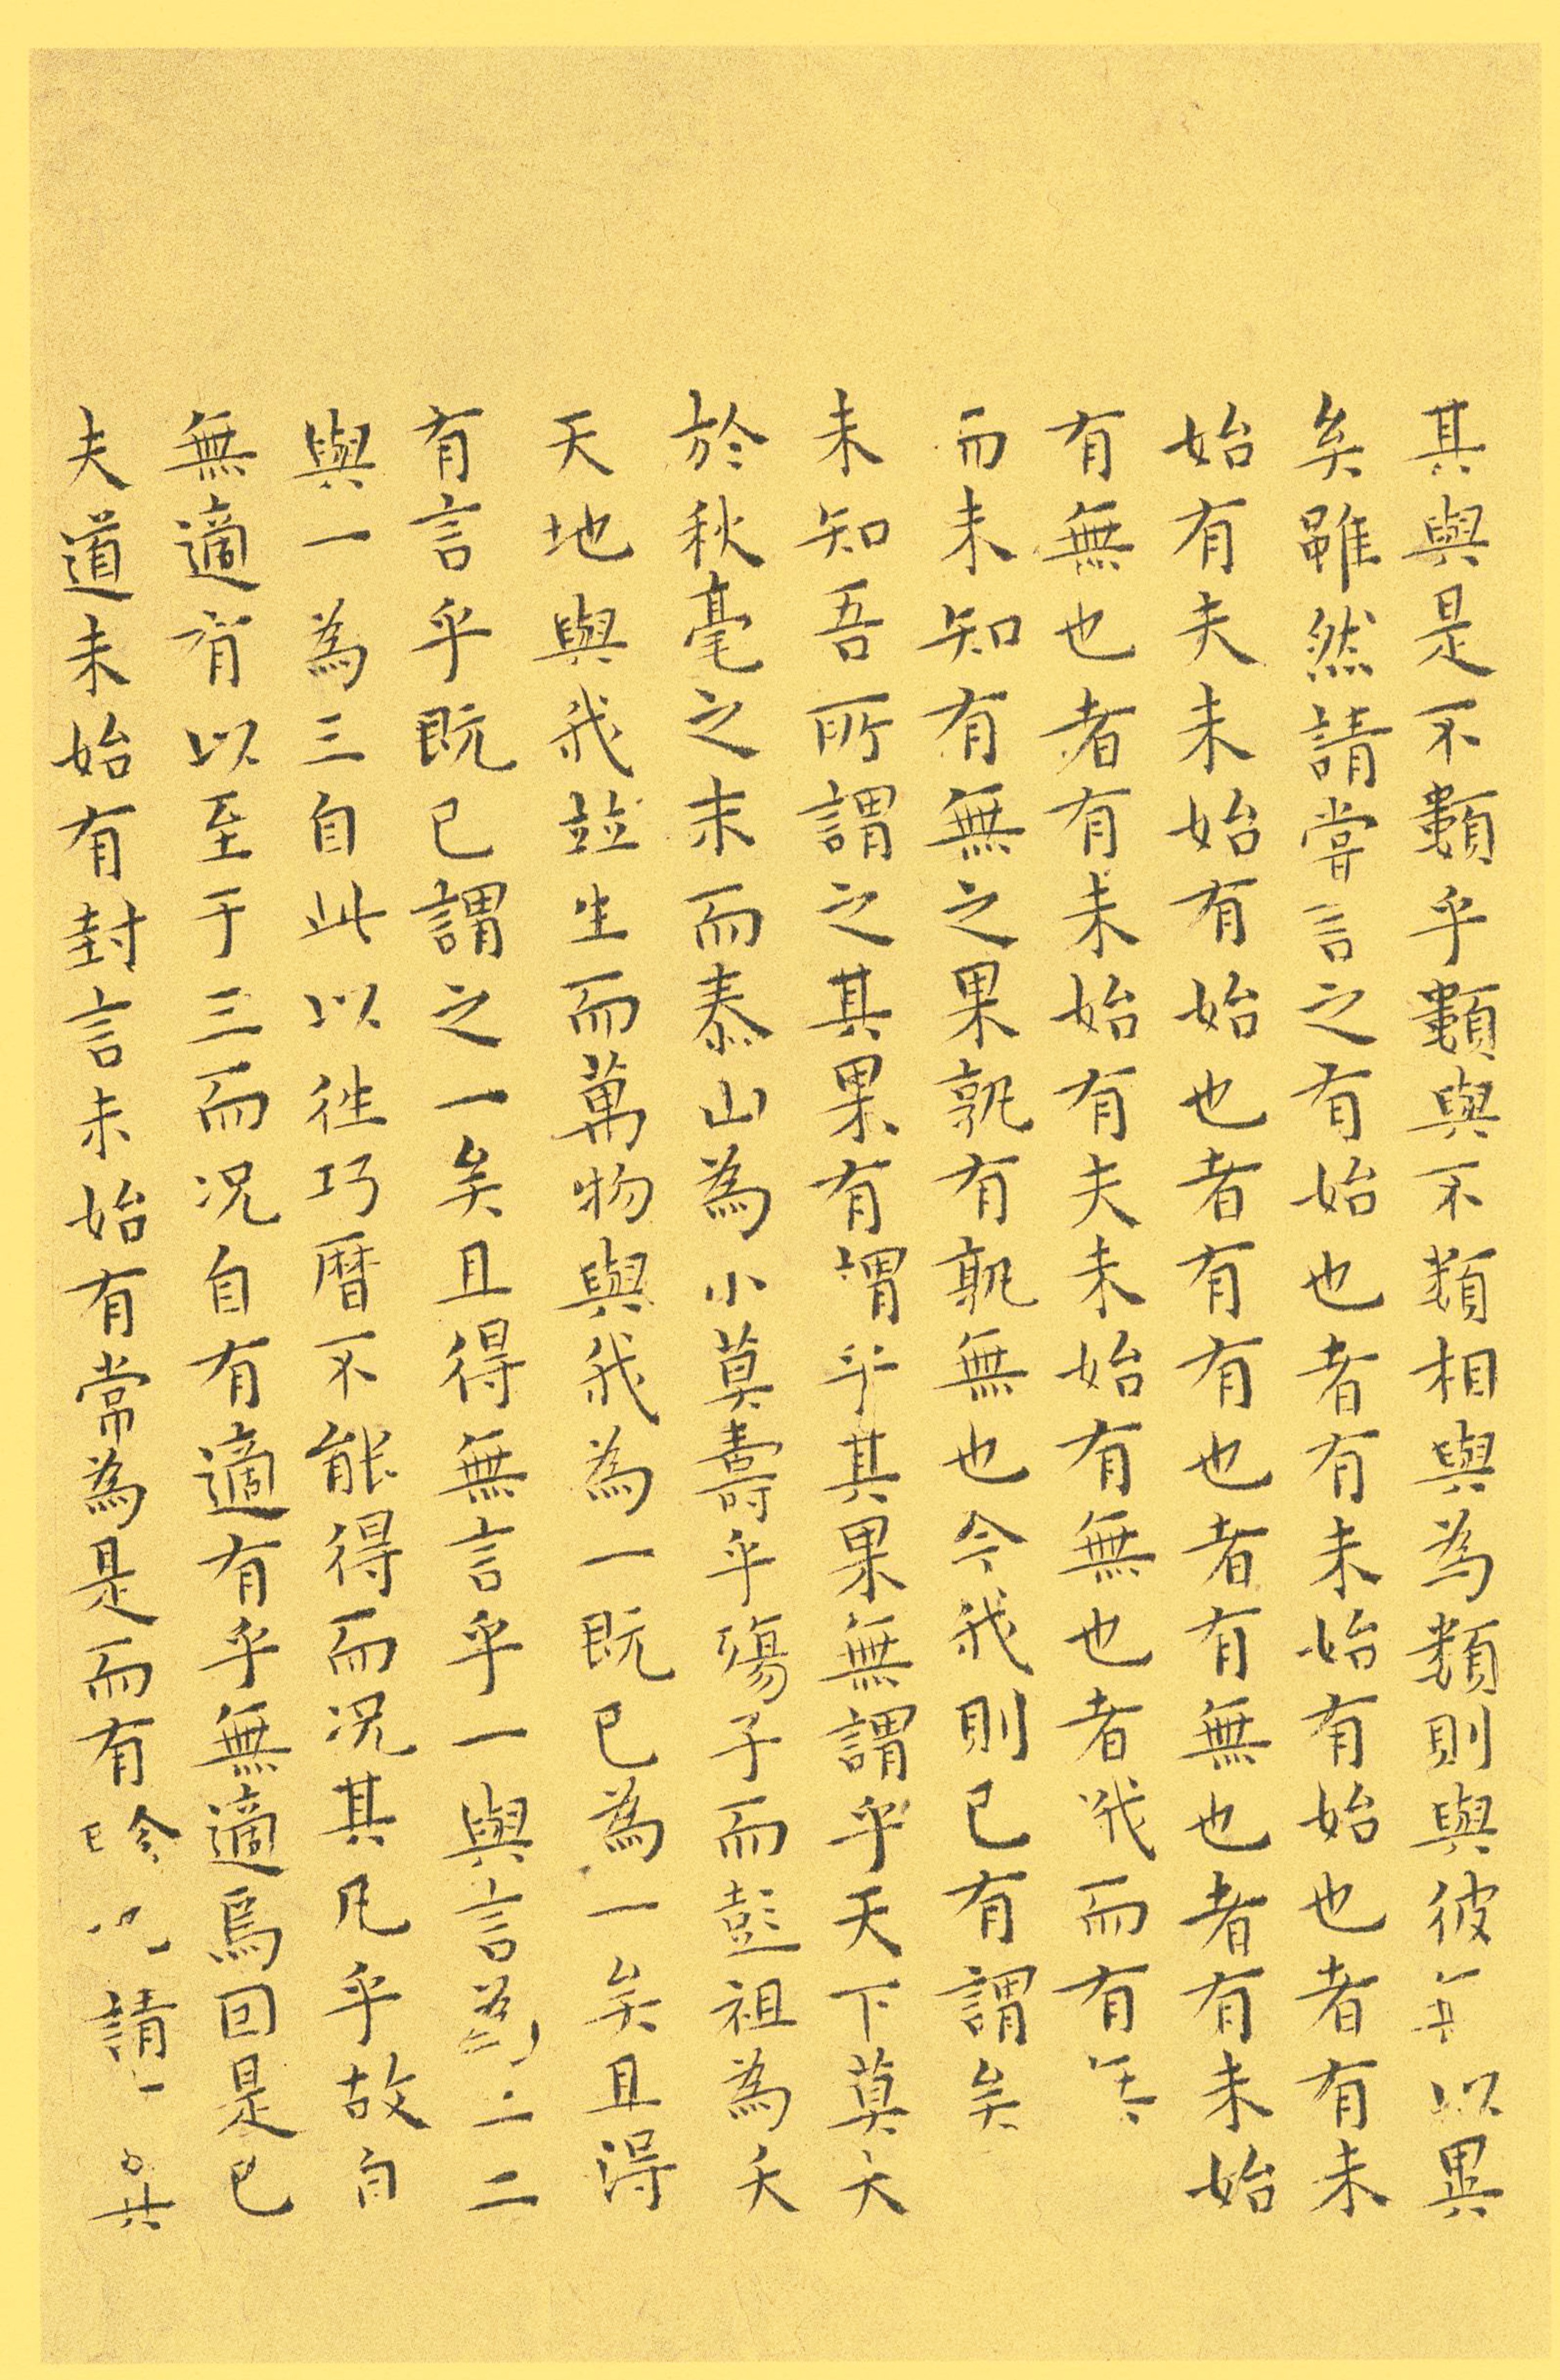 其與是不類乎類與不類相與為類則與彼以異
矣雖然請嘗言之有始也者有未始有始也者有未
始有夫未始有始也者有有也者有無也者有未始
有無也者有未始有夫未始有無也者我而有
而未知有無之果孰有孰無也今我則已有謂矣
未知吾所謂之其果有謂乎其果無謂乎天下莫大
於秋毫之末而泰山為小莫壽乎殤子而彭祖為夭
天地與我並生而萬物與我為一既已為一矣且得
有言乎既已謂之一矣且得無言乎一與言為二二
與一為三自此以往巧曆不能得而況其凡乎故自
無適有以至于三而況自有適有乎無適焉因是已
夫道未始有封言未始有常為是而有畛請